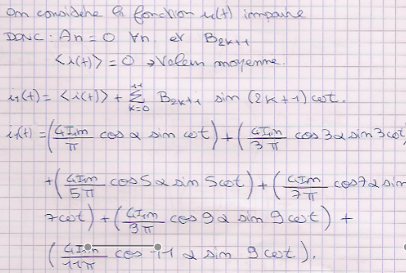 On considère la fonction i₁(t) impaire
DONC : An = 0 ∀n et B₂ₖ₊₁
<i(t)> = 0 → Valeur moyenne.
i₁(t) = <i(t)> + Σ_{k=0}^{11} B₂ₖ₊₁ sin (2k+1) ωt.
i₁(t) = (4Im/π cos α sin ωt) + (4Im/3π cos 3α sin 3ωt
+ (4Im/5π cos 5α sin 5ωt) + (4Im/7π cos 7α sin
7ωt) + (4Im/9π cos 9α sin 9ωt) +
(4Im/11π cos 11 α sin 9ωt).